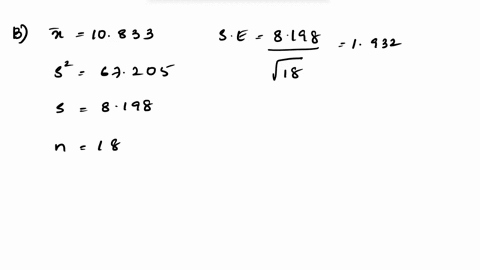 B) x̄ = 10.833
s² = 67.205
s = 8.198
n = 18
S.E = 8.198 / √18 = 1.932